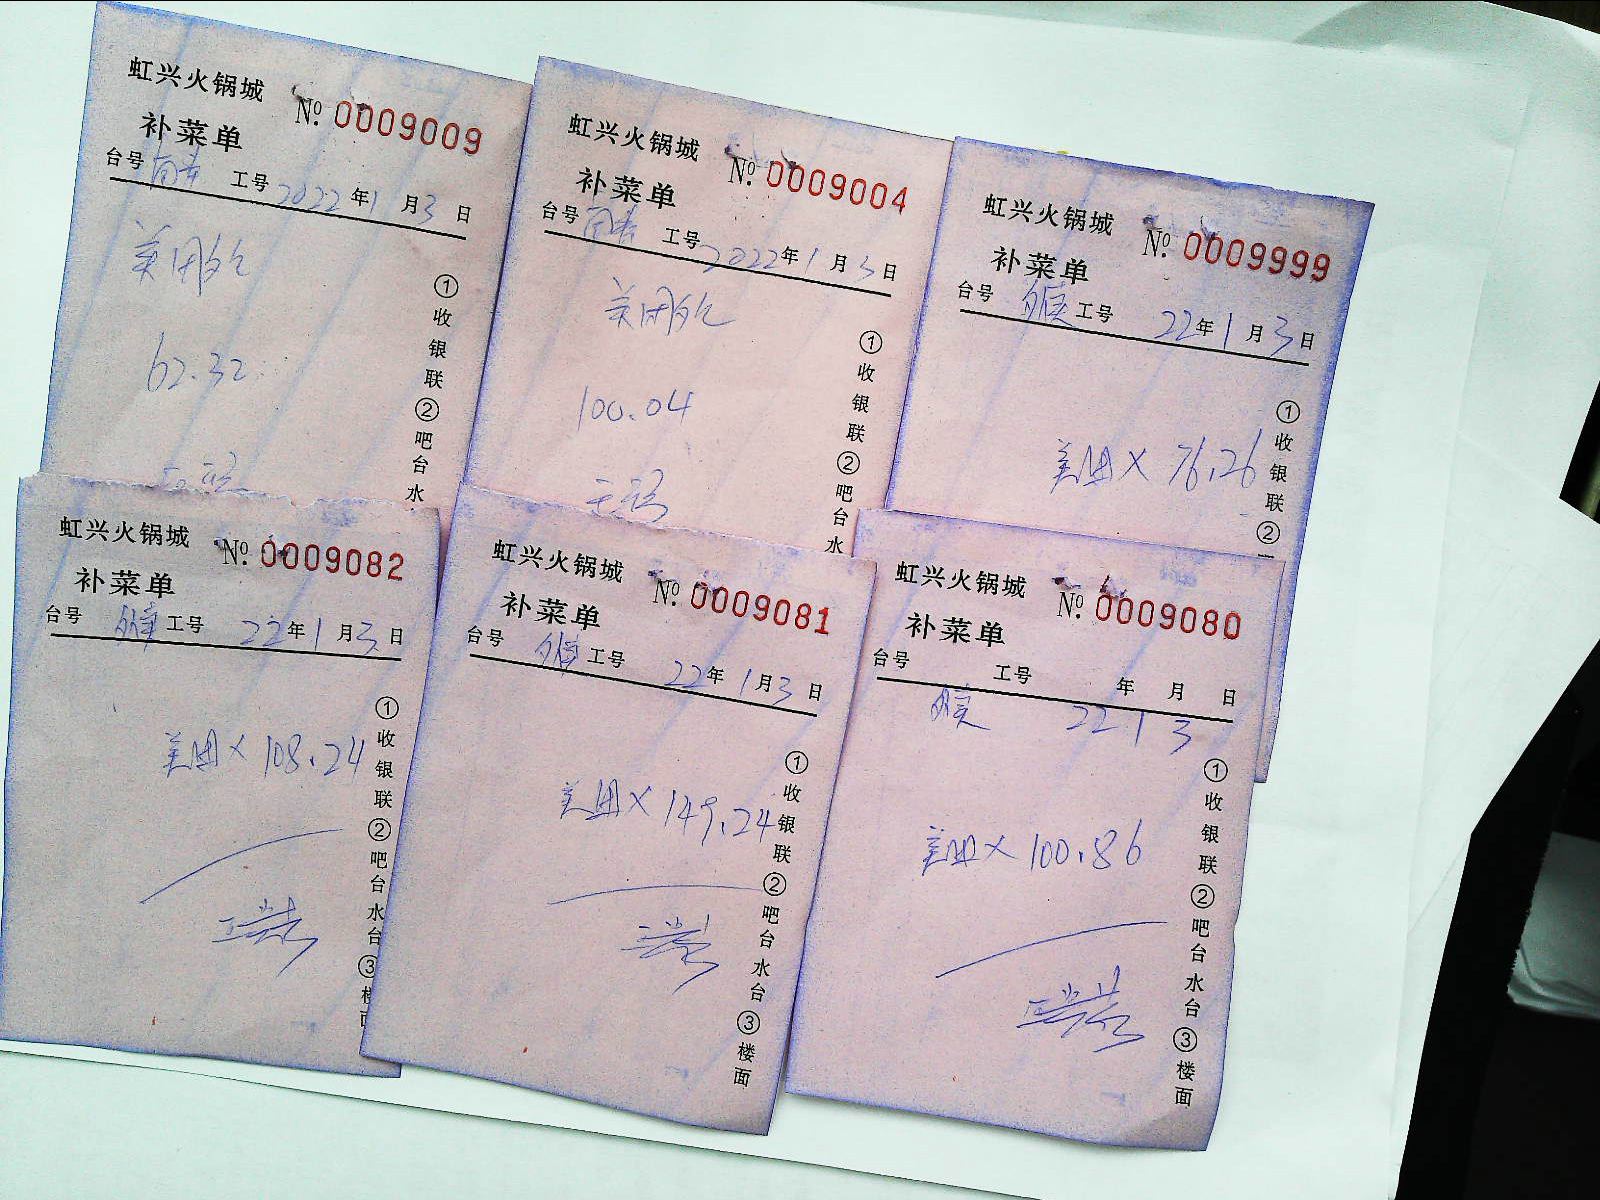 虹兴火锅城
№ 0009009
补菜单
台号 工号 2022年1月3日
62.32
①收银联②吧台水
虹兴火锅城
№ 0009004
补菜单
台号 工号 2022年1月3日
100.04
①收银联②吧台水
虹兴火锅城
№ 0009999
补菜单
台号 工号 22年1月3日
美团X 76.26
①收银联②
虹兴火锅城
№ 0009082
补菜单
台号 工号 22年1月3日
美团X 108.24
①收银联②吧台水台③
虹兴火锅城
№ 0009081
补菜单
台号 工号 22年1月3日
美团X 149.24
①收银联②吧台水台③楼面
虹兴火锅城
№ 0009080
补菜单
台号 工号 年 月 日
22 1 3
美团X 100.86
①收银联②吧台水台③楼面